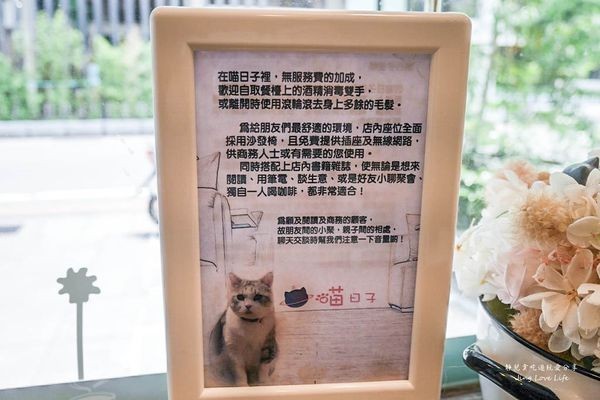 在喵日子裡，無服務費的加成，
歡迎自取餐檯上的酒精消毒雙手，
或離開時使用滾輪滾去身上多餘的毛髮。
為給朋友們最舒適的環境，店內座位全面
採用沙發椅，且免費提供插座及無線網路，
供商務人士或有需要的您使用。
同時搭配上店內書籍雜誌，使無論是想來
閱讀、用筆電、談生意、或是好友小聊聚會、
獨自一人喝咖啡，都非常適合！
為顧及閱讀及商務的顧客，
故朋友間的小聚，親子間的相處，
聊天交談時幫我們注意一下音量喔！
喵日子
靜兒貪吃遊玩愛分享
Jing Love Life